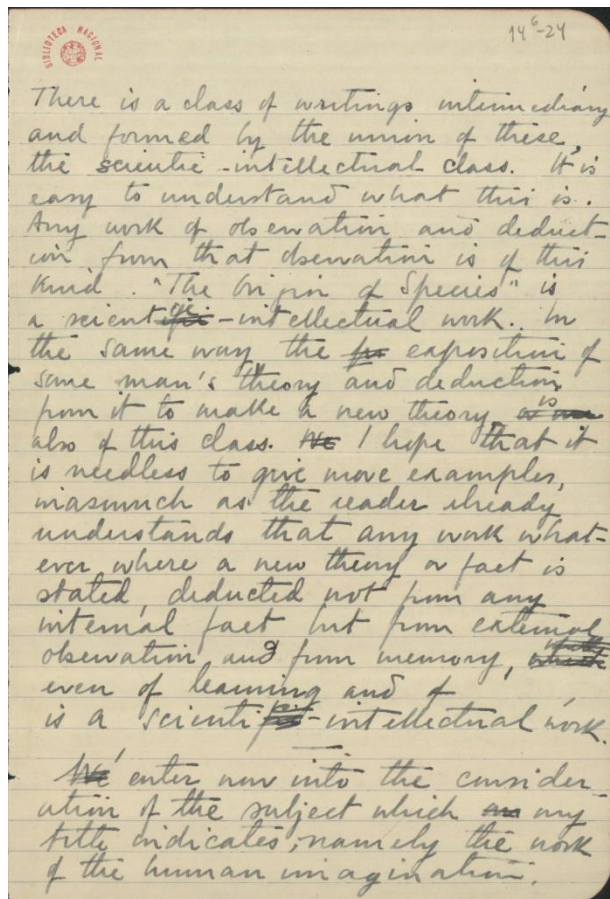 BIBLIOTECA NACIONAL
14⁶-24
There is a class of writings intermediary
and formed by the union of these,
the scientic-intellectual class. It is
easy to understand what this is.
Any work of observation and deduct-
ion from that observation is of this
kind. "The Origin of Species" is
a scientific-intellectual work. In
the same way, the exposition of
some man's theory and deduction
from it to make a new theory, is
also of this class. I hope that it
is needless to give more examples,
inasmuch as the reader already
understands that any work what-
ever where a new theory or fact is
stated, deducted not from any
internal fact but from external
observation, and from memory,
even of learning and of
is a scientific-intellectual work.
I enter now into the consider-
ation of the subject which my
title indicates, namely the work
of the human imagination.